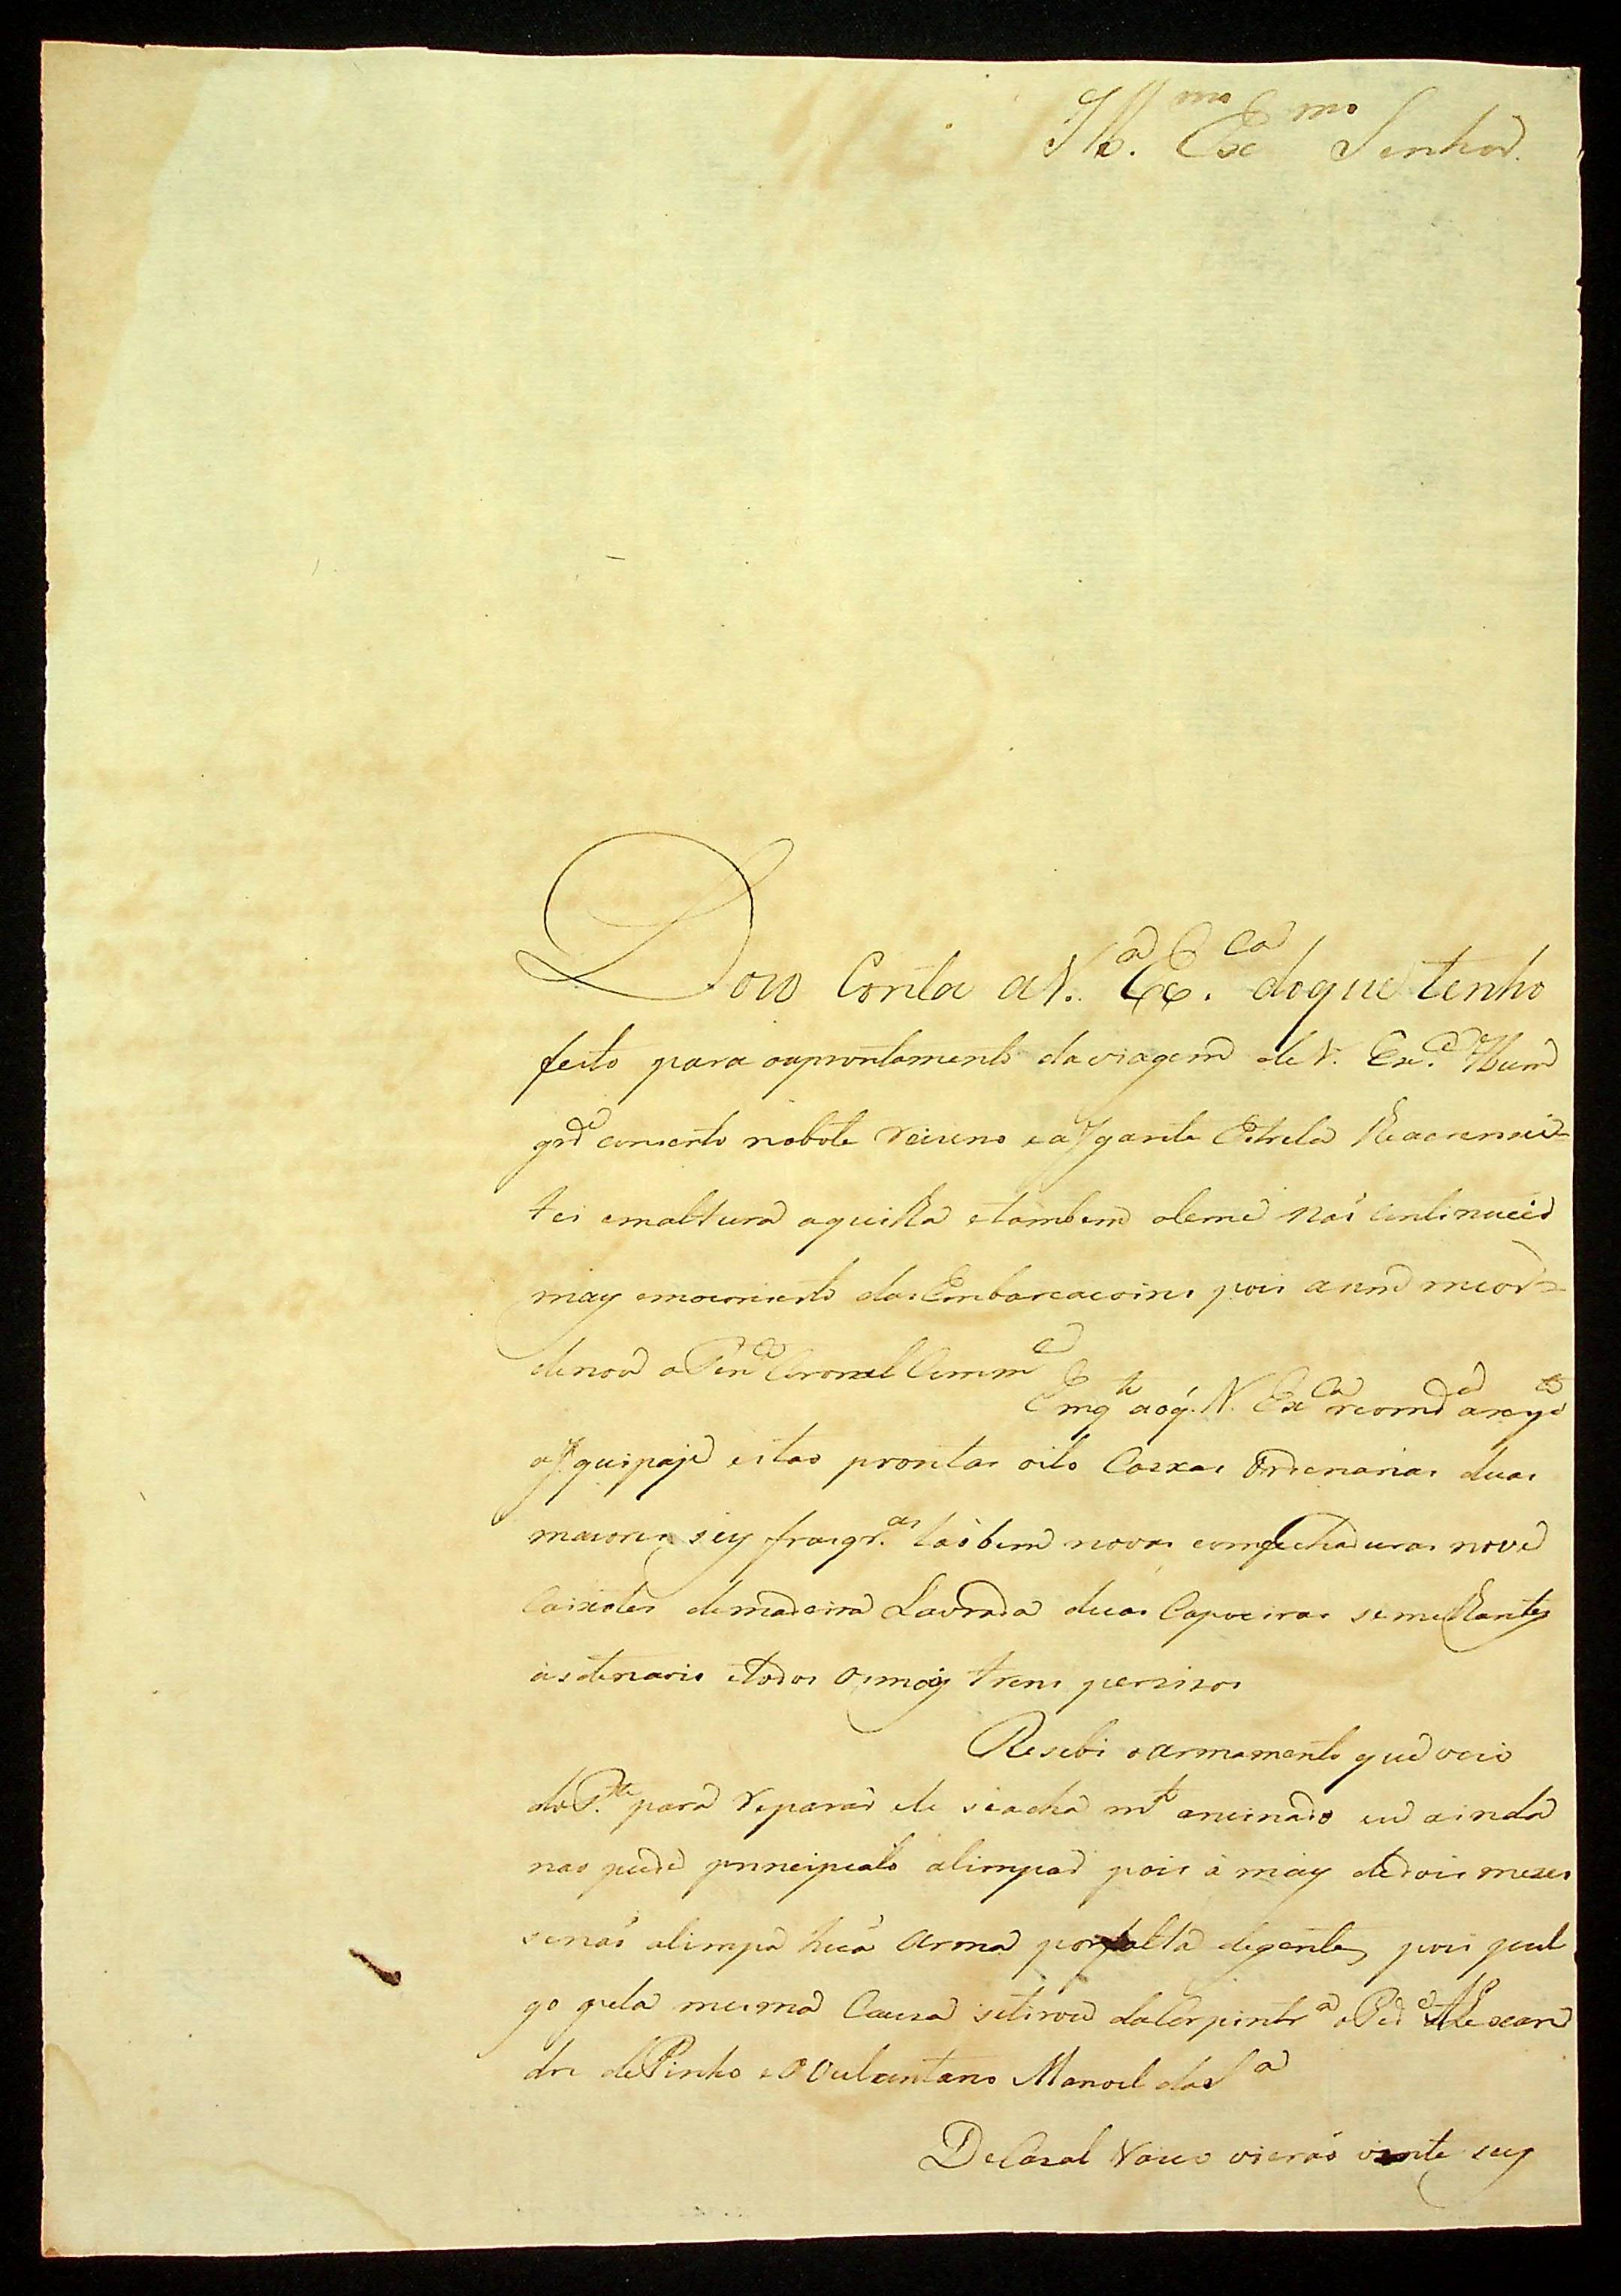 Ill.mo Ex.mo Senhor.
Dou Conta a V.a Ex.ca doque tenho
feito para oaprontamento daviagem de V. Ex.ca Hum
grd.e conserto nobote Reiuno ea Igarite Estrela
tei emaltura aquilha etambem oleme Naõ continuei
may emoconserto das Embarcacoins pois anim meor=
denou o Ten.e Coronel Comm.e
Emq.to aoq. V. Ex.ca recomd.a
a Iquipaje estao prontas oito Caxas Ordenarias duas
maiores sey frasqr.as taõbem novas comfechaduras nove
Caixotes demadeira Lavrada duas Capoeiras semelhantes
etodos osmay trens percizos
Resebi oarmamento que veio
do P.te para Reparar ele seacha m.to aruinado eu ainda
nao pude prencipialo alimpar pois à may dedois mezes
senaõ alimpa huã arma porfalta degente, pois jul
go pela mesma Cauza setirou daCarpintr.a o Ped.o Alexan
dre dePinho eo Vuluntario Manoel da S.a
DeCazal Vasco vieraõ vinte sey